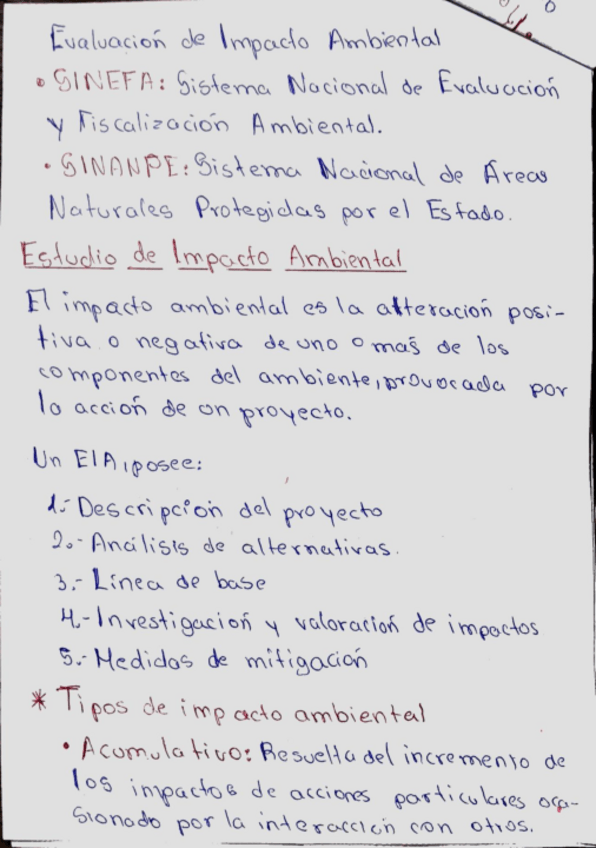 Evaluación de Impacto Ambiental
• SINEFA: Sistema Nacional de Evaluación
y Fiscalización Ambiental.
• SINANPE: Sistema Nacional de Áreas
Naturales Protegidas por el Estado.
Estudio de Impacto Ambiental
El impacto ambiental es la alteración posi-
tiva o negativa de uno o más de los
componentes del ambiente, provocada por
la acción de un proyecto.
Un EIA, posee:
1.- Descripción del proyecto
2.- Análisis de alternativas.
3.- Línea de base
4.- Investigación y valoración de impactos
5.- Medidas de mitigación
* Tipos de impacto ambiental
• Acumulativo: Resuelta del incremento de
los impactos de acciones particulares oca-
sionado por la interacción con otros.